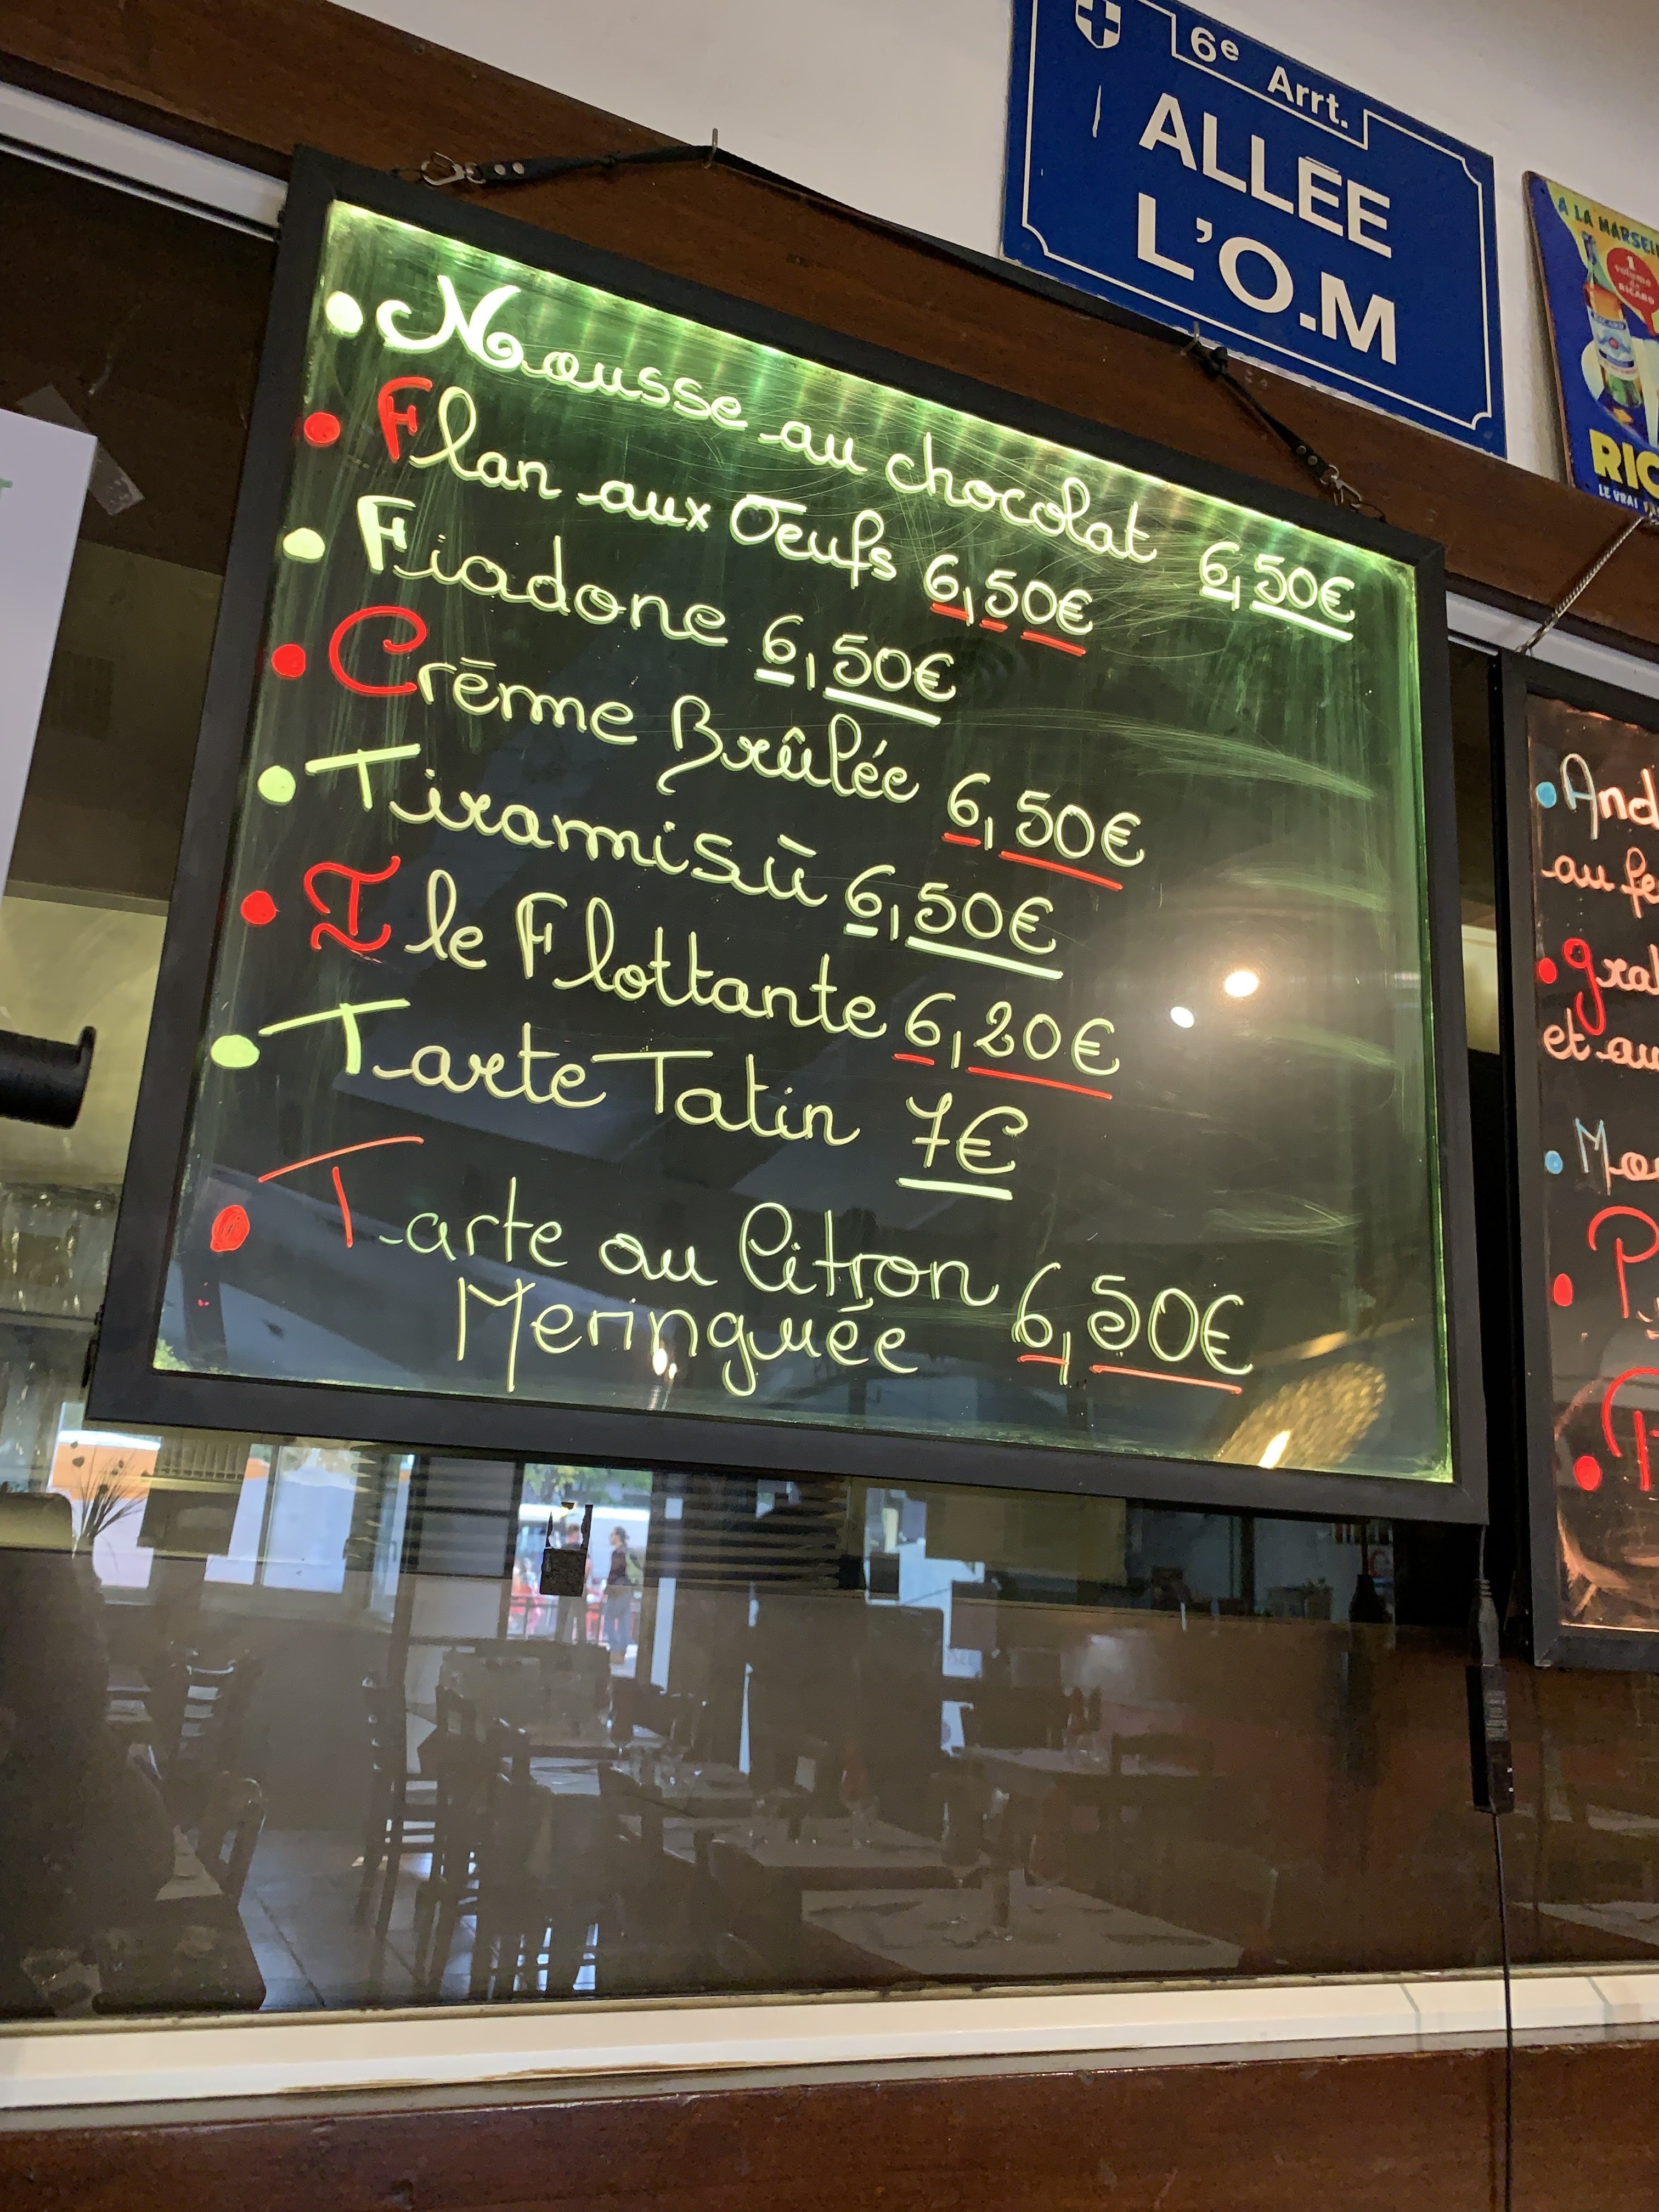 6e Arrt.
ALLÉE
L'O.M
A LA MARSEI
1
volume
de
RICARD
RICARD
RIC
LE VRAI
• Mousse au chocolat 6,50€
• Flan aux Oeufs 6,50€
• Fiadone 6,50€
• Crēme Brûlée 6,50€
• Tiramisū 6,50€
• Ile Flottante 6,20€
• Tarte Tatin 7€
• Tarte au Citron 6,50€
Meringuée
• And
au fe
• gra
et au
• Mo
• P